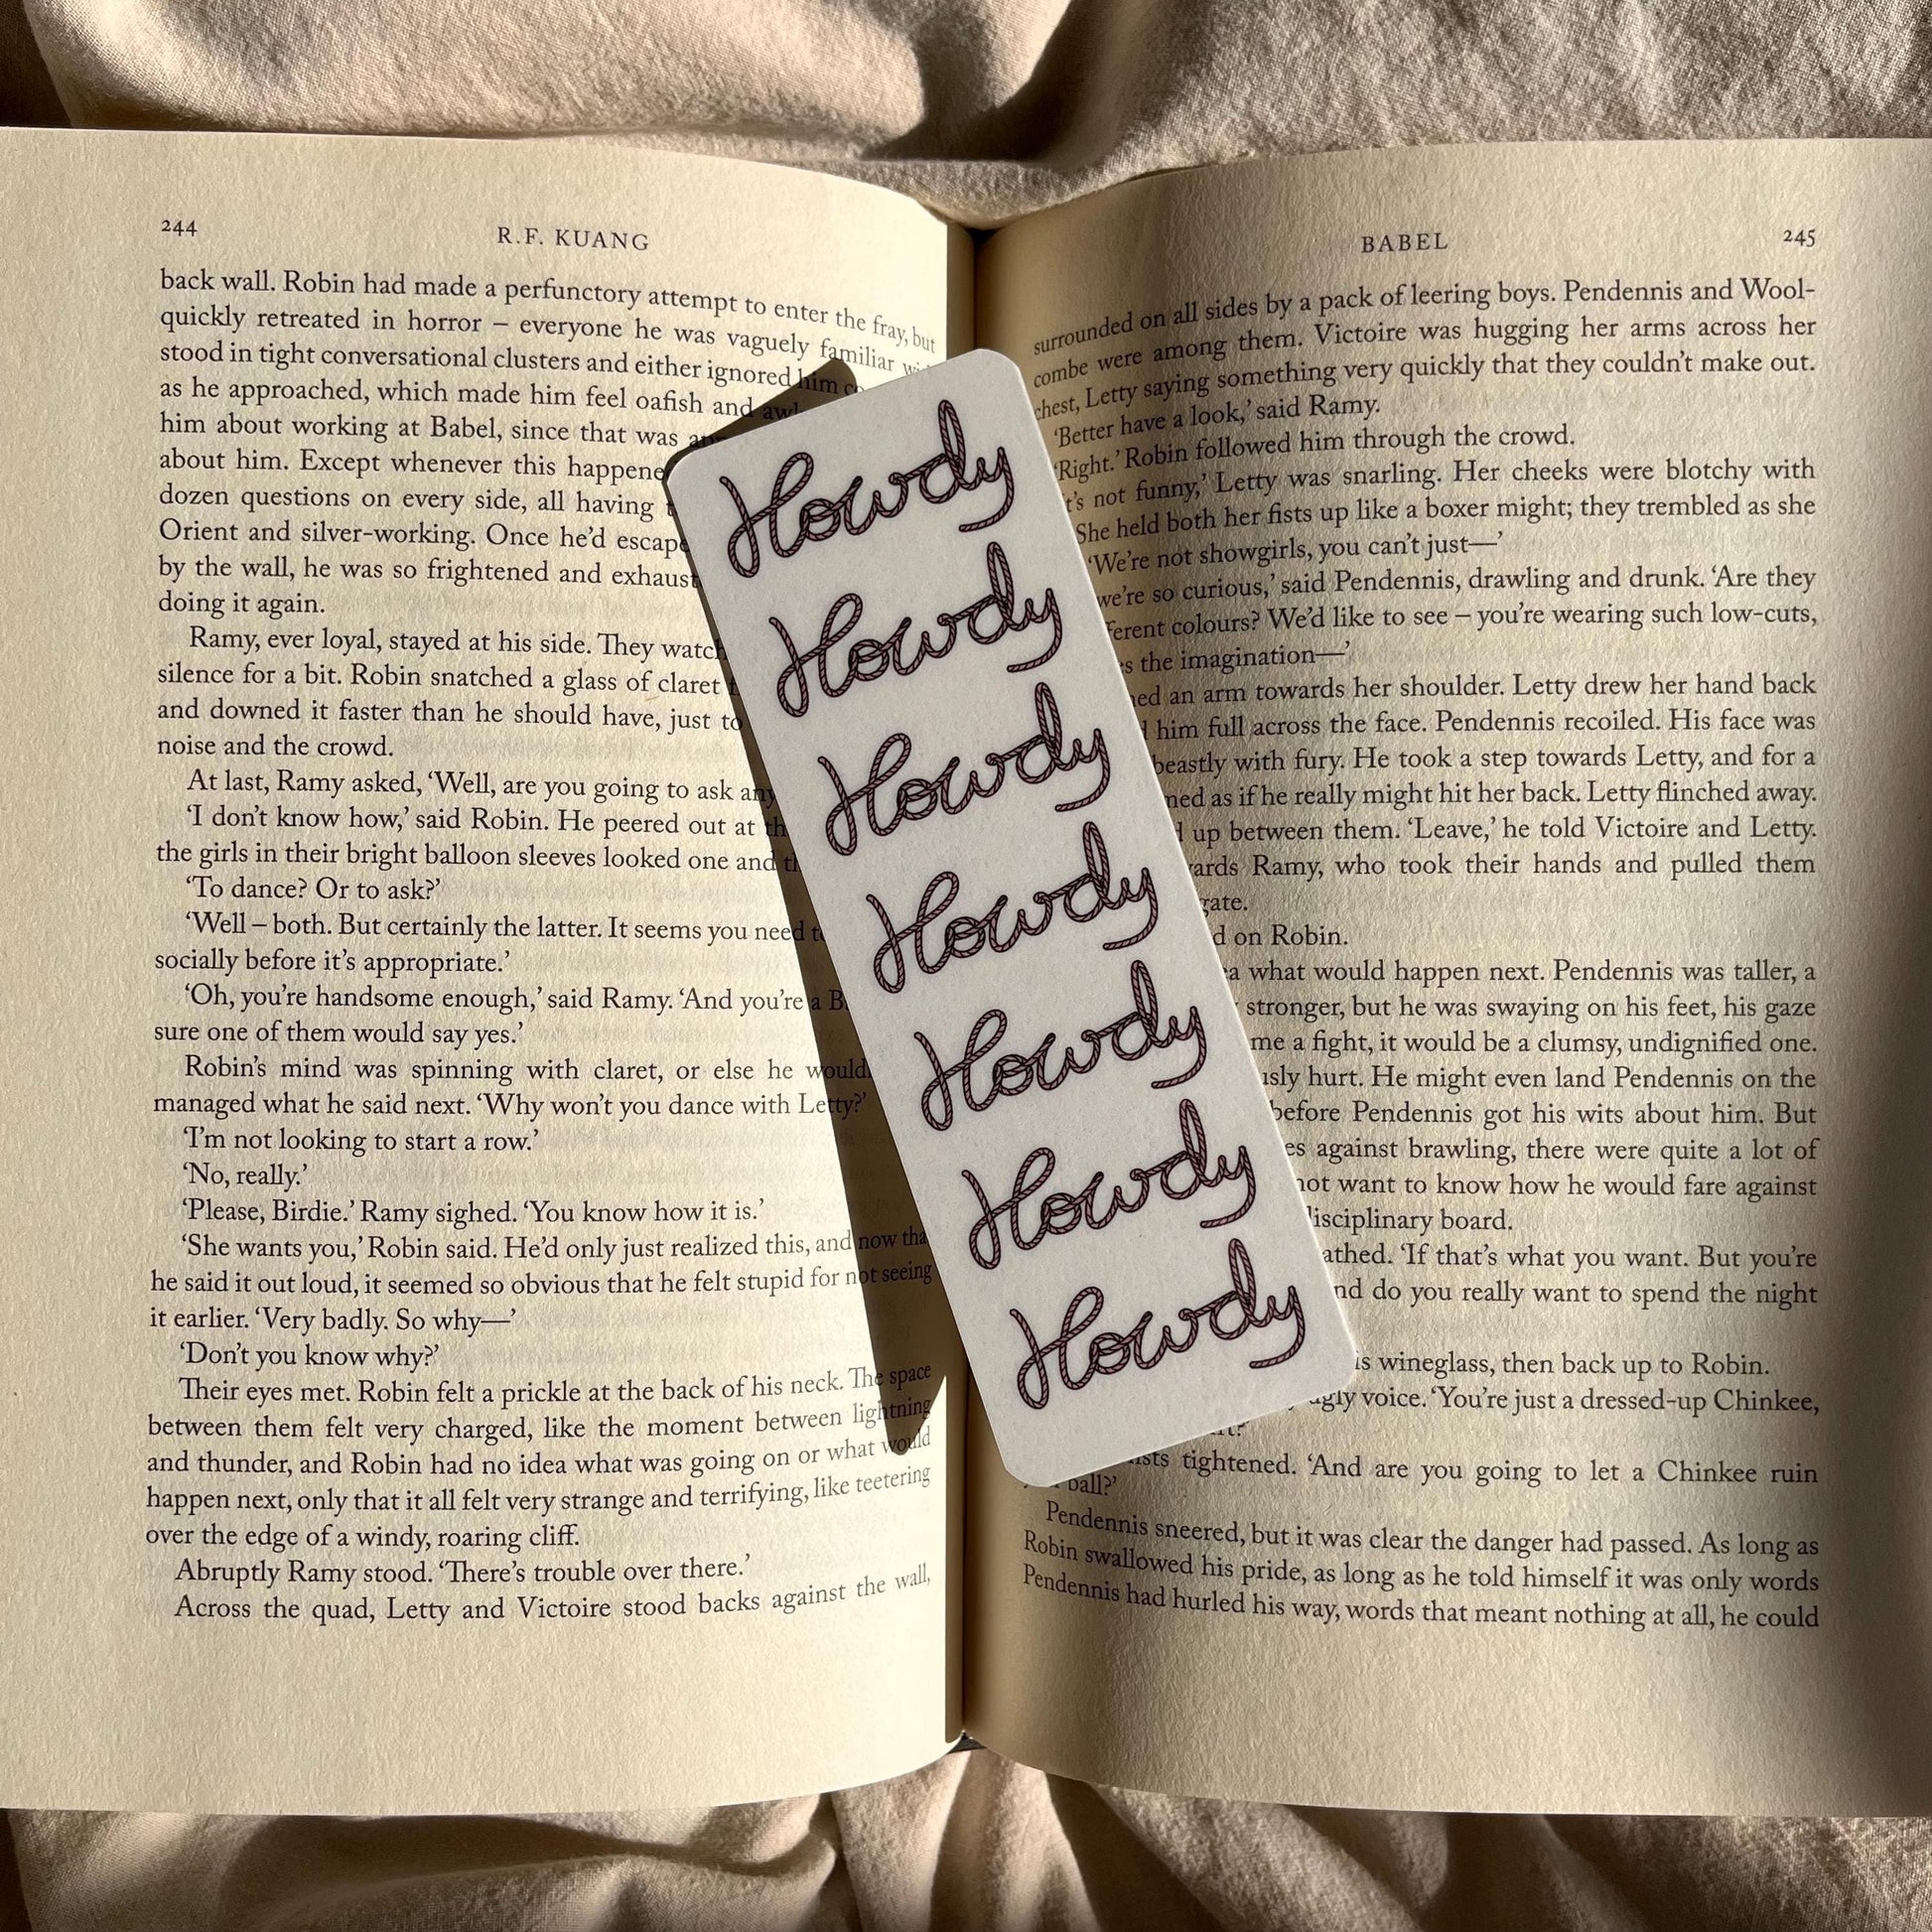 244
R.F. KUANG
back wall. Robin had made a perfunctory attempt to enter the fray, but
quickly retreated in horror – everyone he was vaguely familiar
stood in tight conversational clusters and either ignored him
as he approached, which made him feel oafish and
him about working at Babel, since that was
about him. Except whenever this
dozen questions on every side, all having
Orient and silver-working. Once he'd
by the wall, he was so frightened and
doing it again.
Ramy, ever loyal, stayed at his side. They
silence for a bit. Robin snatched a glass of claret
and downed it faster than he should have, just to
noise and the crowd.
At last, Ramy asked, 'Well, are you going to ask
'I don't know how,' said Robin. He peered out at
the girls in their bright balloon sleeves looked one and
'To dance? Or to ask?'
'Well – both. But certainly the latter. It seems you need
socially before it's appropriate.'
'Oh, you're handsome enough,' said Ramy. 'And you're a
sure one of them would say yes.'
Robin's mind was spinning with claret, or else he would
managed what he said next. 'Why won't you dance with Letty?'
'I'm not looking to start a row.'
'No, really.'
'Please, Birdie.' Ramy sighed. 'You know how it is.'
'She wants you,' Robin said. He'd only just realized this, and now
he said it out loud, it seemed so obvious that he felt stupid for not seeing
it earlier. 'Very badly. So why—'
'Don't you know why?'
Their eyes met. Robin felt a prickle at the back of his neck. The space
between them felt very charged, like the moment between lightning
and thunder, and Robin had no idea what was going on or what would
happen next, only that it all felt very strange and terrifying, like teetering
over the edge of a windy, roaring cliff.
Abruptly Ramy stood. 'There's trouble over there.'
Across the quad, Letty and Victoire stood backs against the wall,
Howdy
Howdy
Howdy
Howdy
Howdy
Howdy
Howdy
BABEL
245
surrounded on all sides by a pack of leering boys. Pendennis and Wool-
combe were among them. Victoire was hugging her arms across her
chest, Letty saying something very quickly that they couldn't make out.
'Better have a look,' said Ramy.
'Right.' Robin followed him through the crowd.
not funny,' Letty was snarling. Her cheeks were blotchy with
She held both her fists up like a boxer might; they trembled as she
'We're not showgirls, you can't just—'
we're so curious,' said Pendennis, drawling and drunk. 'Are they
colours? We'd like to see – you're wearing such low-cuts,
the imagination—'
an arm towards her shoulder. Letty drew her hand back
him full across the face. Pendennis recoiled. His face was
beastly with fury. He took a step towards Letty, and for a
as if he really might hit her back. Letty flinched away.
up between them. 'Leave,' he told Victoire and Letty.
Ramy, who took their hands and pulled them
on Robin.
what would happen next. Pendennis was taller, a
stronger, but he was swaying on his feet, his gaze
a fight, it would be a clumsy, undignified one.
hurt. He might even land Pendennis on the
before Pendennis got his wits about him. But
against brawling, there were quite a lot of
not want to know how he would fare against
disciplinary board.
'If that's what you want. But you're
do you really want to spend the night
wineglass, then back up to Robin.
ugly voice. 'You're just a dressed-up Chinkee,
tightened. 'And are you going to let a Chinkee ruin
ball?'
Pendennis sneered, but it was clear the danger had passed. As long as
Robin swallowed his pride, as long as he told himself it was only words
Pendennis had hurled his way, words that meant nothing at all, he could